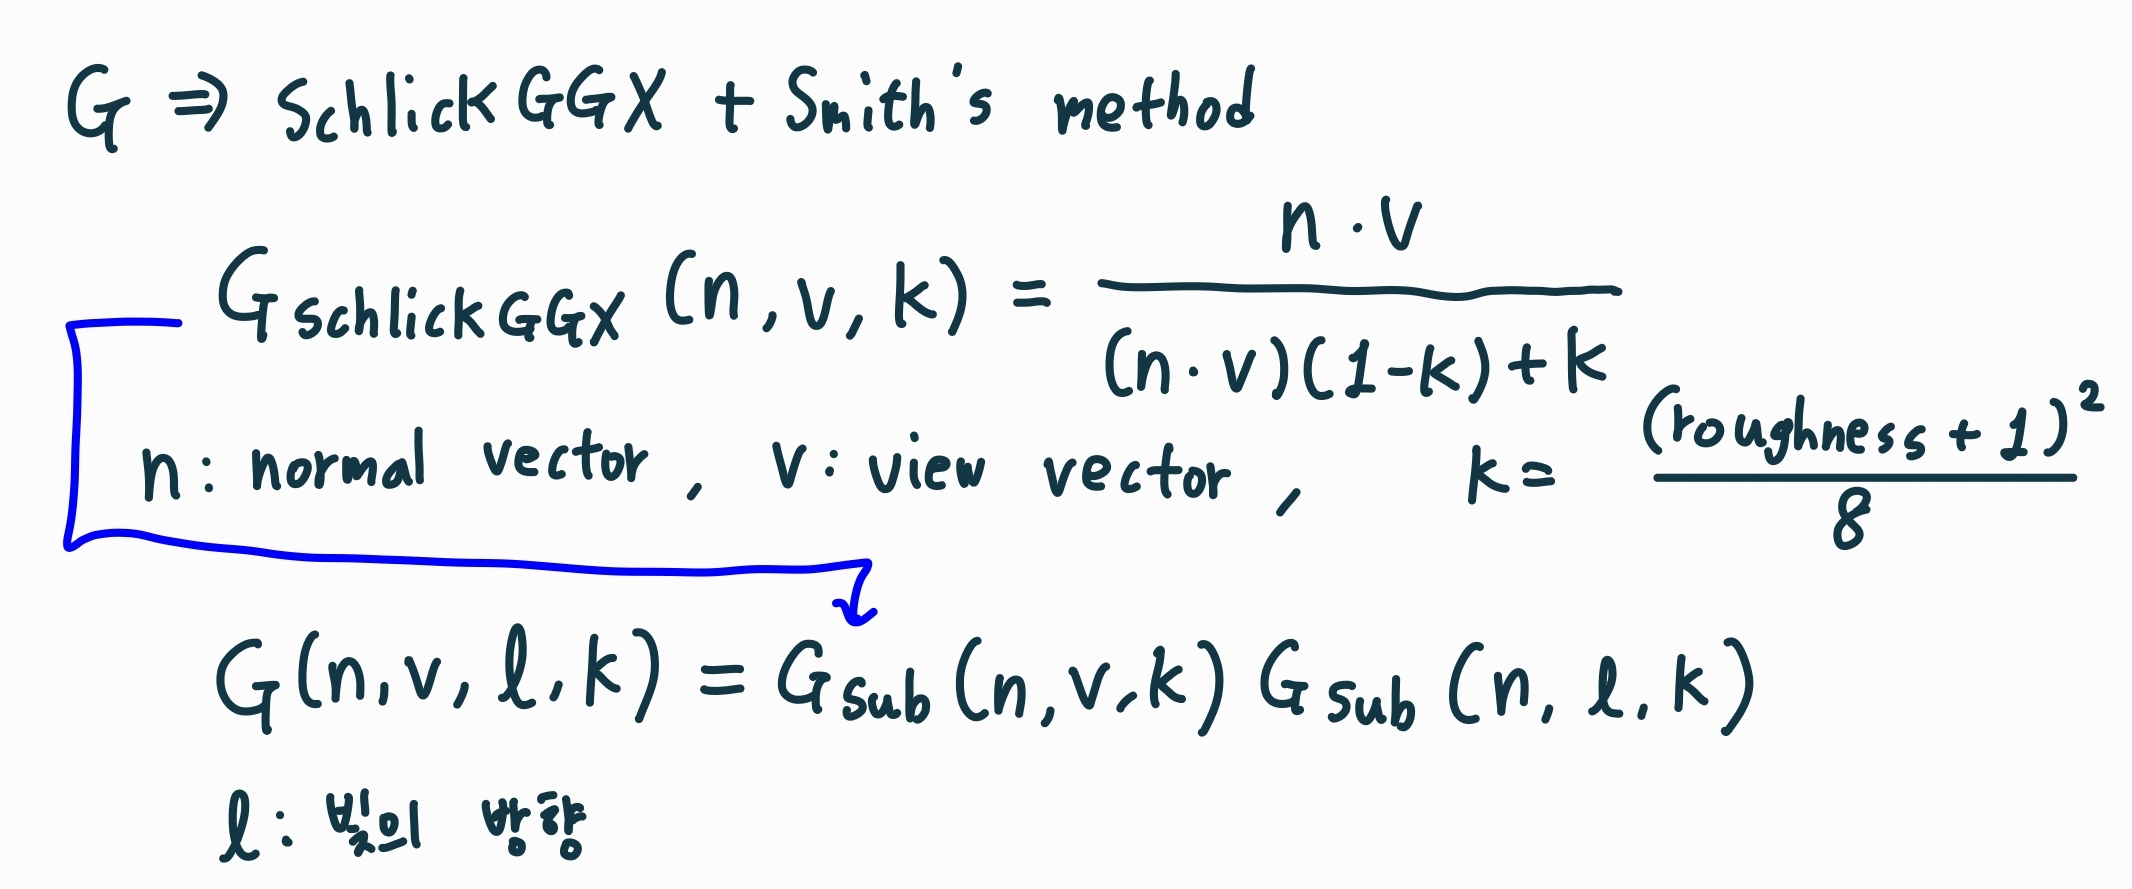 G ⇒ Schlick GGX + Smith's method
G schlick GGX (n, v, k) = n · v / (n · v)(1-k) + k
n : normal vector , v : view vector , k = (roughness + 1)² / 8
G(n, v, l, k) = G sub (n, v, k) G sub (n, l, k)
l : 빛의 방향